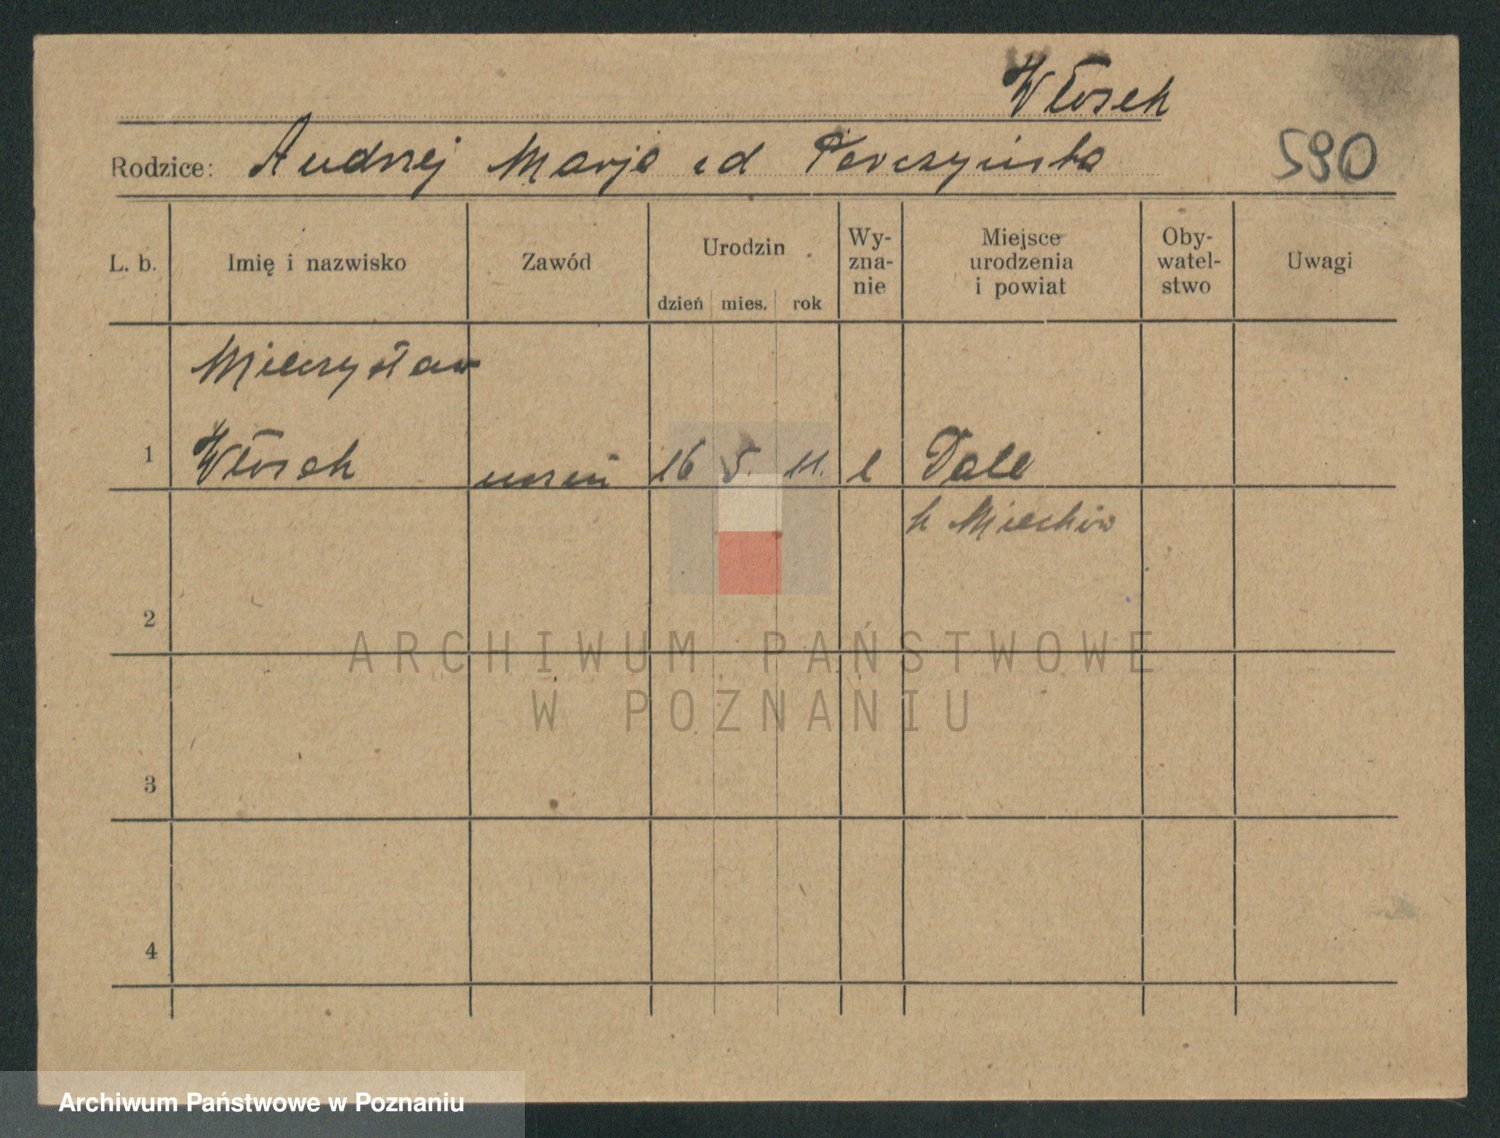 Włosek
Rodzice: Andrzej Marja od Parczyńska
590
L. b. Imię i nazwisko Zawód Urodzin dzień mies. rok Wy-zna-nie Miejsce urodzenia i powiat Oby-watel-stwo Uwagi
Mieczysław
1 Włosek uczeń 16 5. 11. k Dale
k Miechów
2
ARCHIWUM PAŃSTWOWE
W POZNANIU
3
4
Archiwum Państwowe w Poznaniu